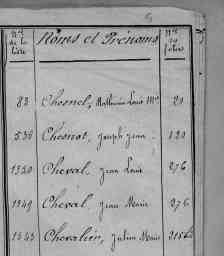 Nos de la liste Noms et Prénoms Nos du folio
83 Chesnel, Mathurin Louis Mie 20
538 Chesnot, Joseph Jean 120
1350 Cheval, Jean Louis 276
1349 Cheval, Jean Marie 276
1543 Chevalier, Julien Marie